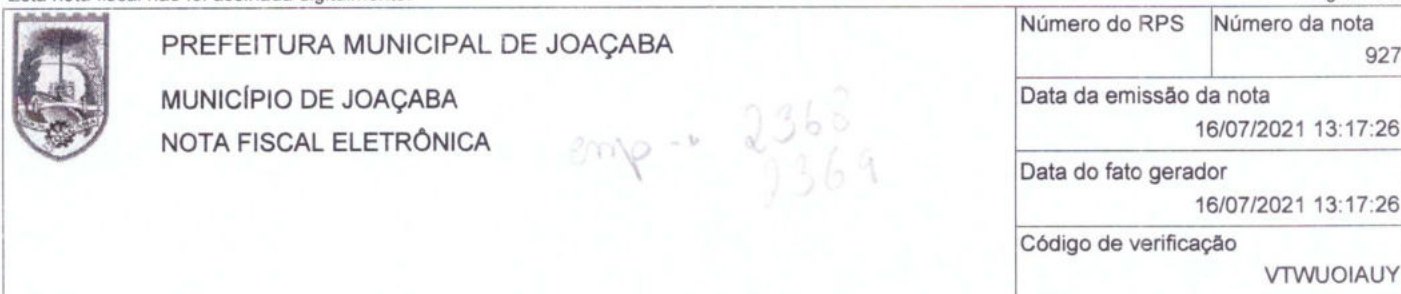 Esta nota fiscal não foi assinada digitalmente.
PREFEITURA MUNICIPAL DE JOAÇABA
MUNICÍPIO DE JOAÇABA
NOTA FISCAL ELETRÔNICA
emp 2368
2369
Número do RPS
Número da nota
927
Data da emissão da nota
16/07/2021 13:17:26
Data do fato gerador
16/07/2021 13:17:26
Código de verificação
VTWUOIAUY